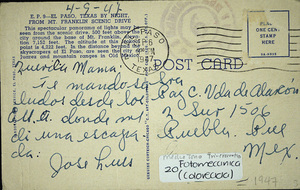 4-9-47
E. P. 9—EL PASO, TEXAS BY NIGHT,
FROM MT. FRANKLIN SCENIC DRIVE
This spectacular panorama of lights may be
seen from the scenic drive, 500 feet above the
city around the base of Mt. Franklin,
7,152 feet. The altitude at this
point is 4,222 feet. In the distance beyond the
skyscrapers of El Paso, are seen the city
lights and mountain ranges in Old Mexico
PASO
1947
TEXAS
PLACE
ONE CENT
STAMP
HERE
POST CARD
Querida Mama:
te mando sa
ludos desde los
E.U.A. donde me
di una escapa
da:
Jose Luis
Sra
Paz C. Vda de Alarcon
2 Sur 1506
Puebla, Pue
Mex.
20
Fotomecanica
(coloreado)
= 1947